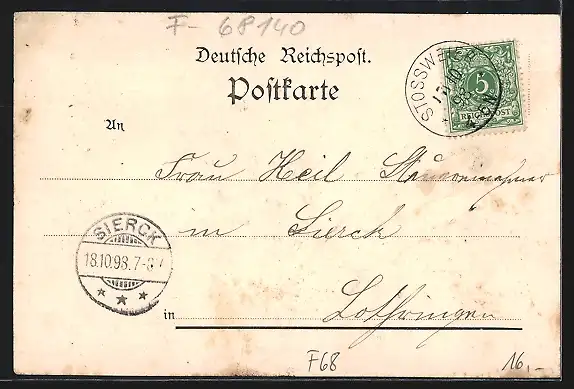 F-68140
Deutsche Reichspost.
Postkarte
STOSSWEIER
5
REICHSPOST
An
Frau Heil
in Sierck
SIERCK
18.10.98.7-8
in Lothringen
F68
16,-